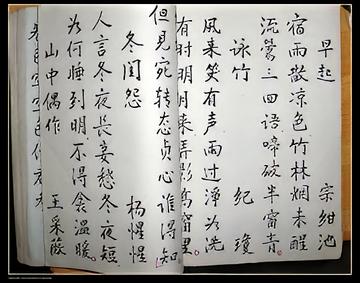 早起 宗绀池
宿雨散凉色竹林烟未醒
流莺三四语啼破半窗青。
咏竹 纪琼
风来笑有声雨过净如洗
有时明月来弄影高窗里。
但见宛转态贞心谁得知
冬闺怨 杨惺惺
人言冬夜长妾愁冬夜短
为何睡到明不得衾温暖。
山中偶作 王采薇